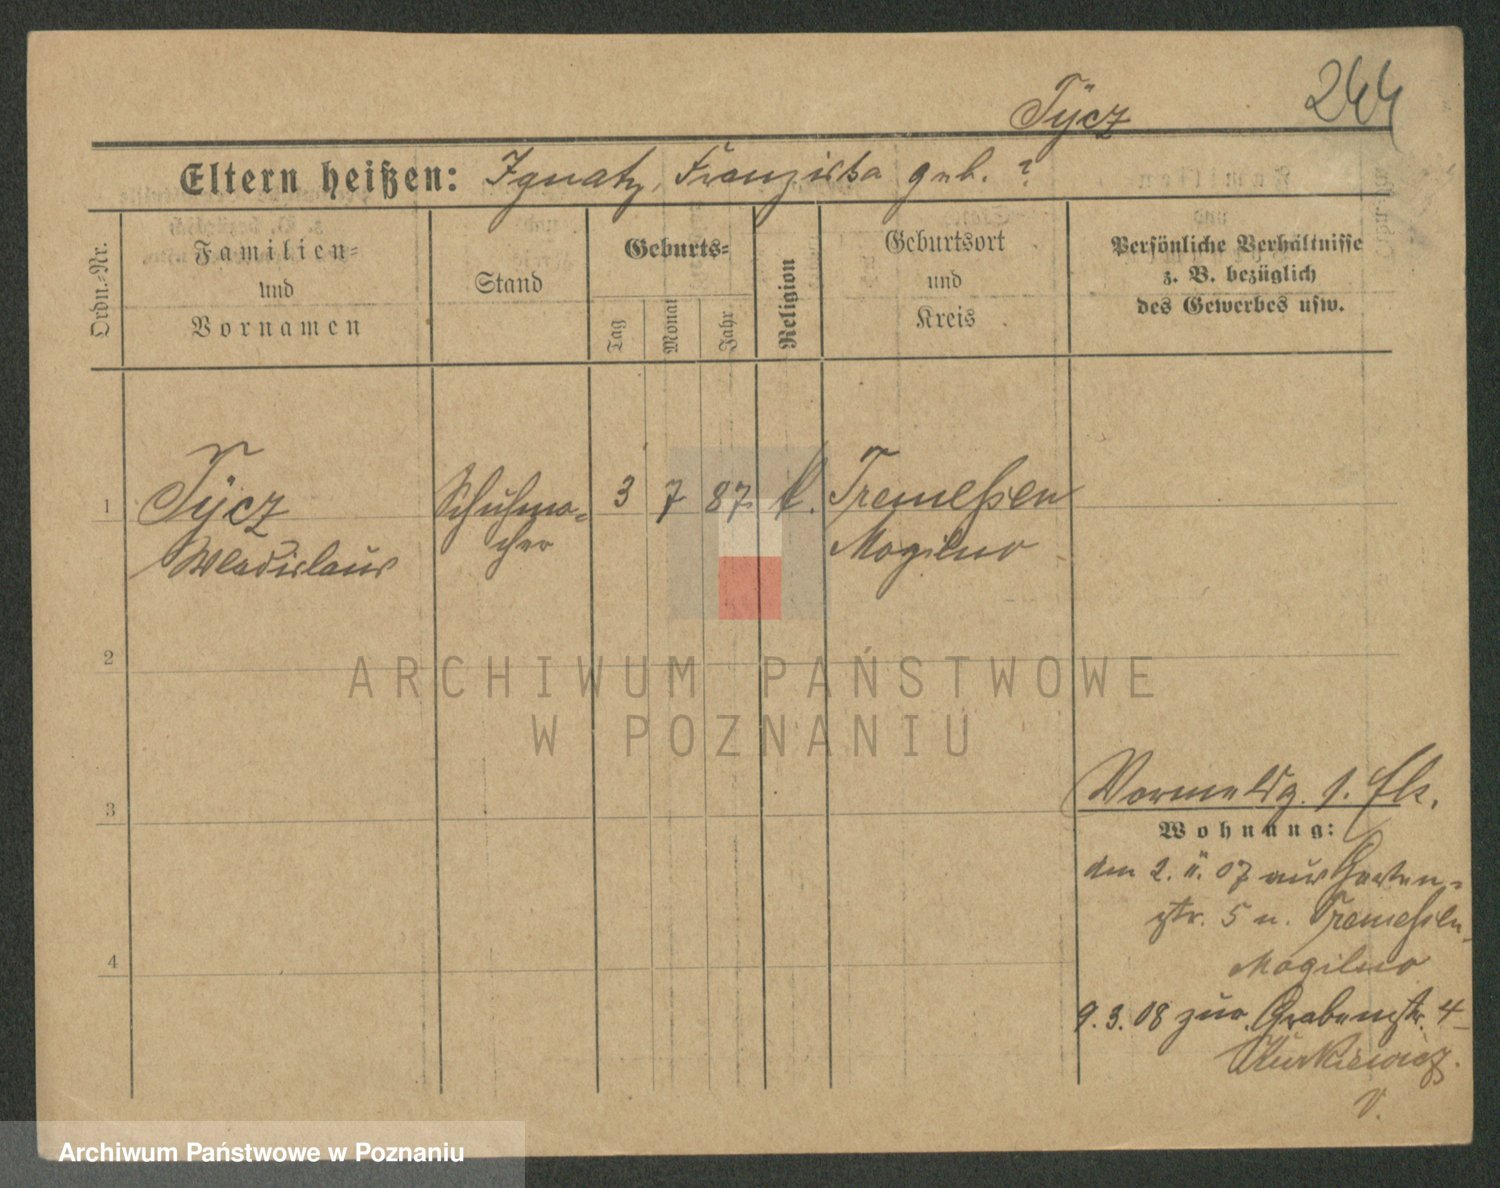 244
Tÿcz
Eltern heißen: Ignatz, Franziska geb. ?
Ordn.-Nr.
Familien-
und
Vornamen
Stand
Geburts-
Tag
Monat
Jahr
Religion
Geburtsort
und
Kreis
Persönliche Verhältnisse
z. B. bezüglich
des Gewerbes usw.
1 Tÿcz Schuhma- 3 7 87 k. Tremessen
Wladislaus cher Mogilno
2
ARCHIWUM PAŃSTWOWE
W POZNANIU
3
Vormeldg.
Wohnung:
den 2. 11. 07 aus Garten-
str. 5 n. Tremessen,
4
Mogilno
9. 3. 08 zur. Grabenstr. 4
Kurkiewicz.
V.
Archiwum Państwowe w Poznaniu